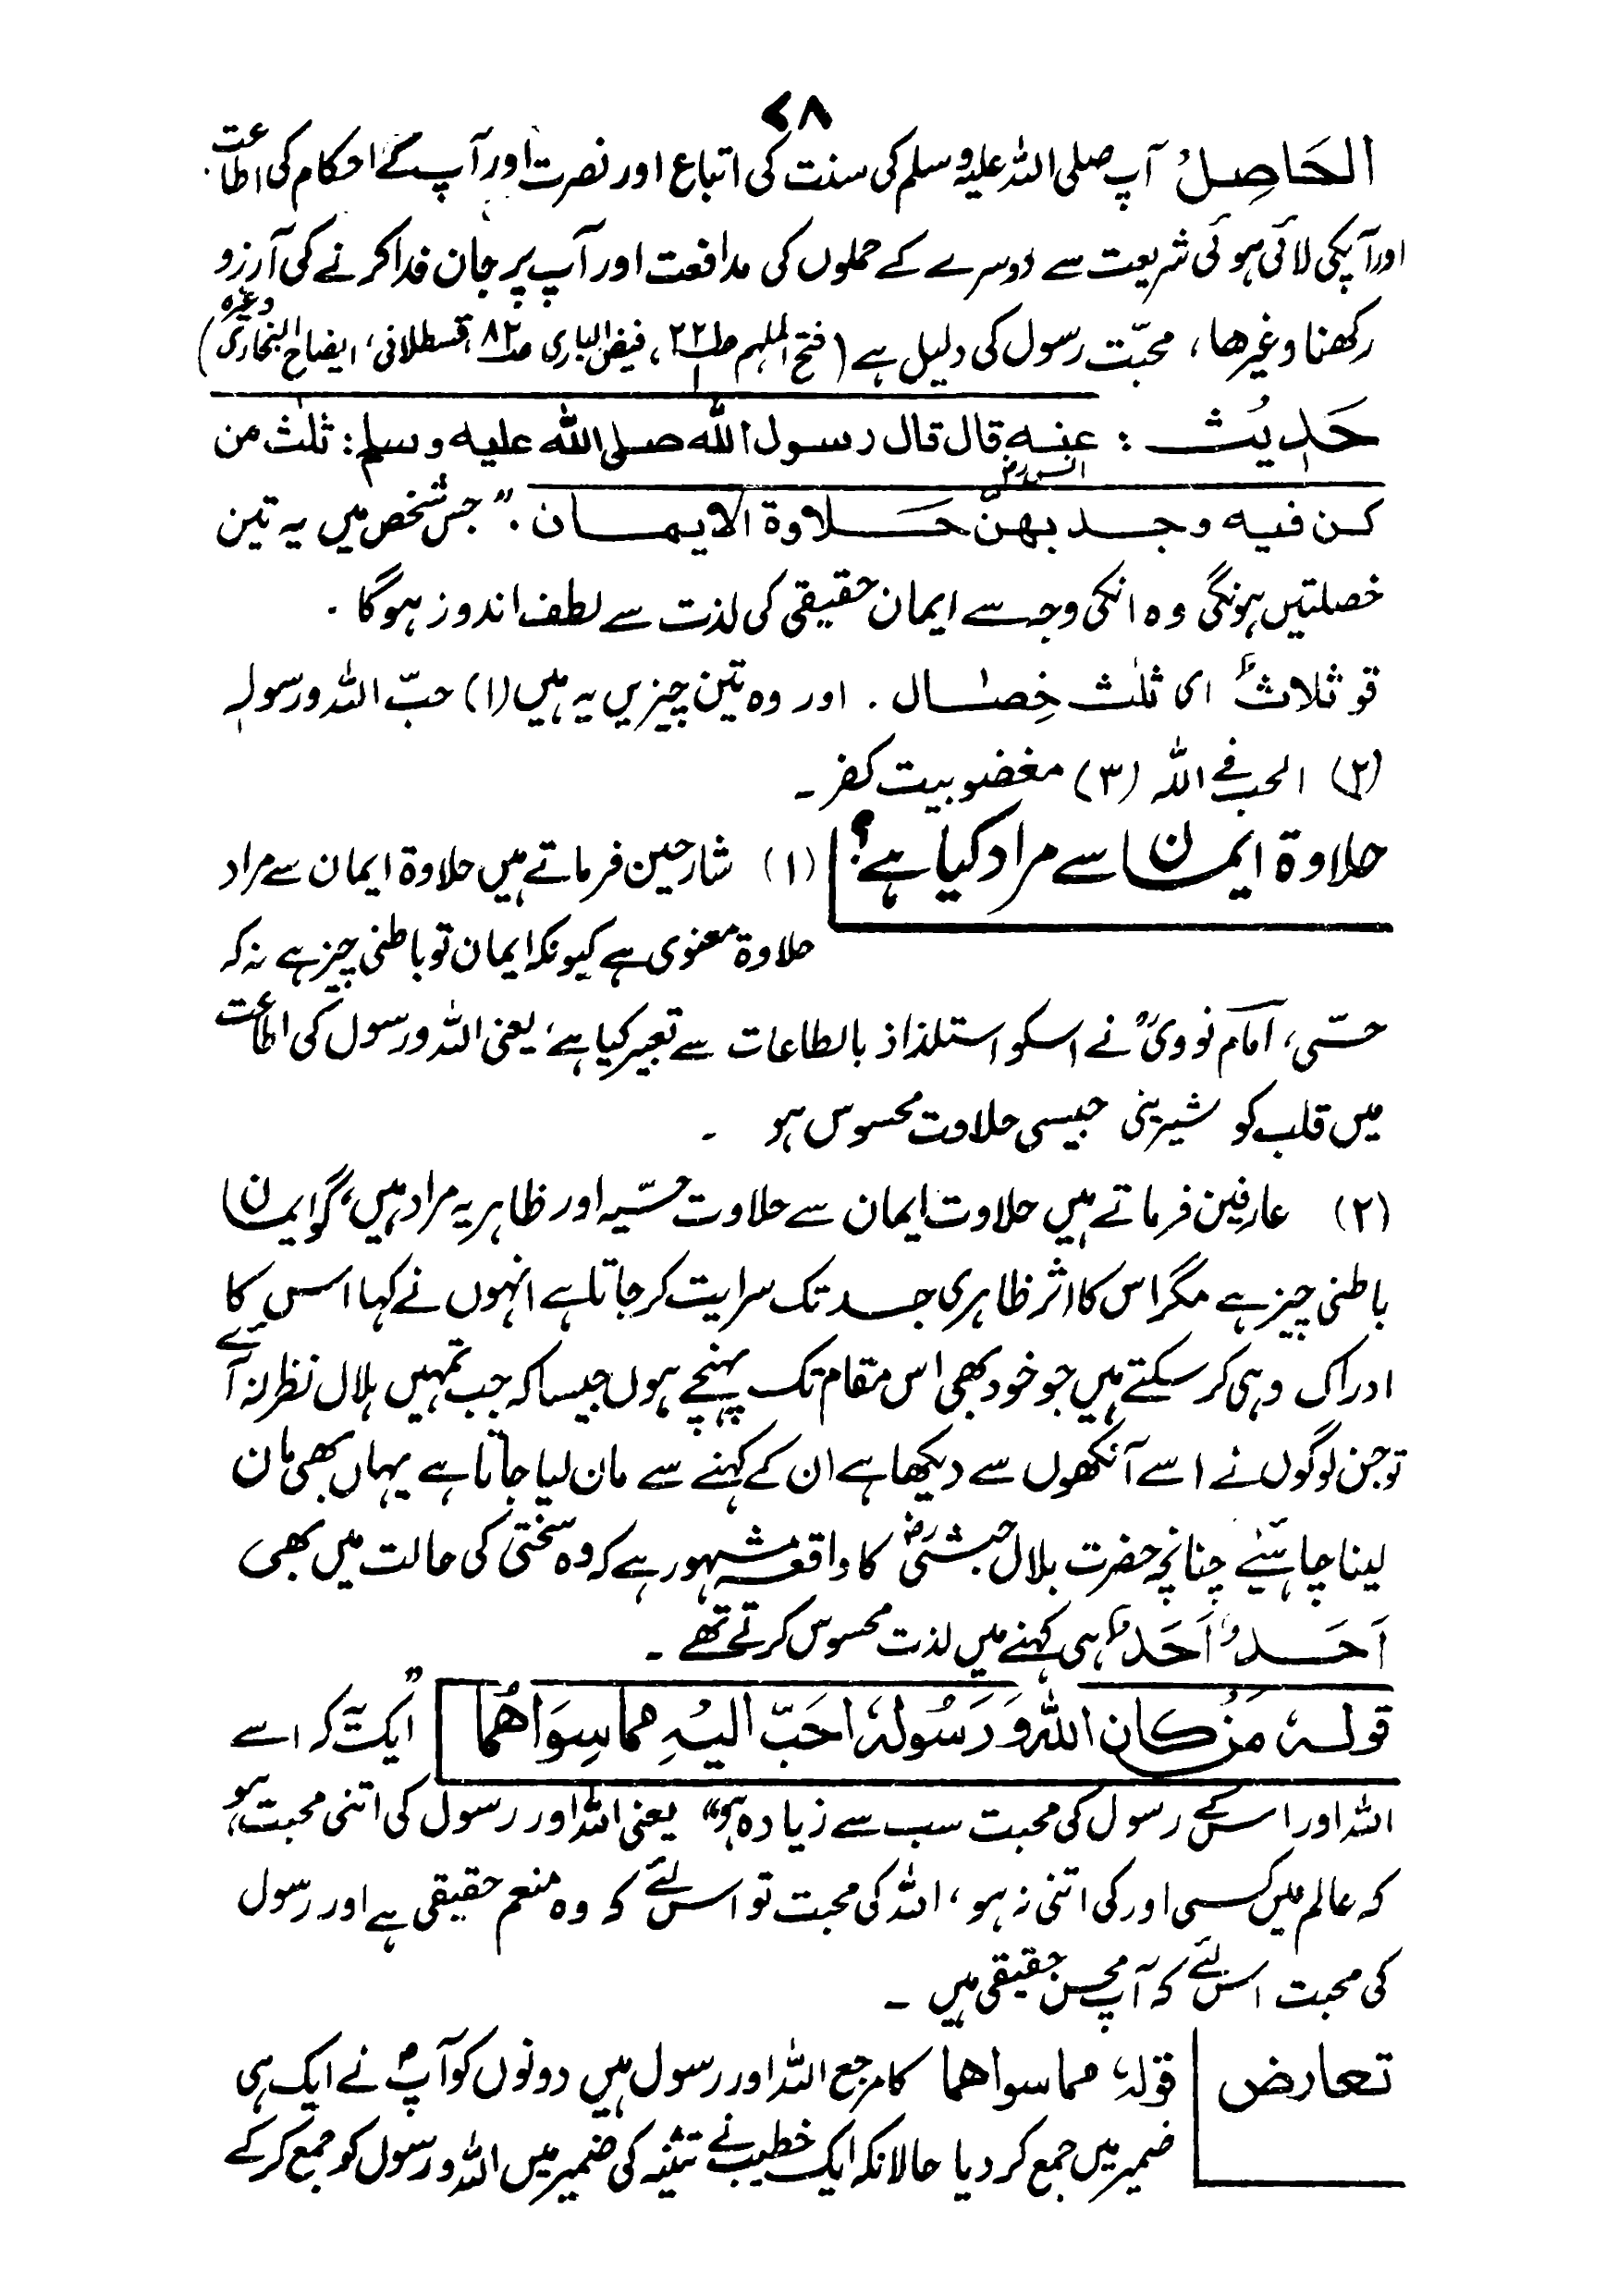 ۷۸
الحَاصِلُ آپ صلی اللہ علیہ وسلم کی سنت کی اتباع اور نصرت اور آپ کے احکام کی اطاعت
اور آپکی لائی ہوئی شریعت سے دوسرے کے حملوں کی مدافعت اور آپ پر جان فدا کرنے کی آرزو
رکھنا وغیرھا، محبّت رسول کی دلیل ہے (فتح الملہم ، فیض الباری ، قسطلانی، ایضاح البخاری وغیرہ)
حَدِیُث : عنہ قال قال رسول اللہ صلی اللہ علیہ وسلم: ثلٰث من
کن فیہ وجد بھنّ حَلاوۃ الایمان ." جس شخص میں یہ تین
خصلتیں ہونگی وہ انکی وجہ سے ایمان حقیقی کی لذت سے لطف اندوز ہوگا .
قو ثلاثٌ ای ثلٰث خِصال . اور وہ تین چیزیں یہ ہیں (۱) حبّ اللہ ورسولہٖ
(۲) الحب فی اللہ (۳) مغضوبیت کفر ۔
حلاوۃ ایمان سے مراد کیا ہے؟ (۱) شارحین فرماتے ہیں حلاوۃ ایمان سے مراد
حلاوۃ معنوی ہے کیونکہ ایمان تو باطنی چیز ہے نہ کہ
حسّی، امام نوویؒ نے اسکو استلذاذ بالطاعات سے تعبیر کیا ہے، یعنی اللہ ورسول کی اطاعت
میں قلب کو شیرینی جیسی حلاوت محسوس ہو ۔
(۲) عارفین فرماتے ہیں حلاوت ایمان سے حلاوت حسّیہ اور ظاہریہ مراد ہیں، گو ایمان
باطنی چیز ہے مگر اس کا اثر ظاہری جسد تک سرایت کر جاتا ہے انہوں نے کہا اس کا
ادراک وہی کر سکتے ہیں جو خود بھی اس مقام تک پہنچے ہوں جیسا کہ جب تمہیں ہلال نظر نہ آئے
تو جن لوگوں نے اسے آنکھوں سے دیکھا ہے ان کے کہنے سے مان لیا جاتا ہے یہاں بھی مان
لینا چاہئیے چنانچہ حضرت بلال حبشیؓ کا واقعہ مشہور ہے کہ وہ سختی کی حالت میں بھی
اَحَدٌ، اَحَدٌ، ہی کہنے میں لذت محسوس کرتے تھے ۔
قولہٗ مَنْ کان اللہُ وَرَسُولہٗ احَبّ الیہِ مما سِوَاھُما "ایک یہ کہ اسے
اللہ اور اسکے رسول کی محبت سب سے زیادہ ہو" یعنی اللہ اور رسول کی اتنی محبت ہو
کہ عالم میں کسی اور کی اتنی نہ ہو، اللہ کی محبت تو اس لئے کہ وہ منعم حقیقی ہے اور رسول
کی محبت اس لئے کہ آپ محسن حقیقی ہیں ۔
تعارض قولہٗ مما سواھما کا مرجع اللہ اور رسول ہیں دونوں کو آپؐ نے ایک ہی
ضمیر میں جمع کر دیا حالانکہ ایک خطیب نے تثنیہ کی ضمیر میں اللہ و رسول کو جمع کرکے